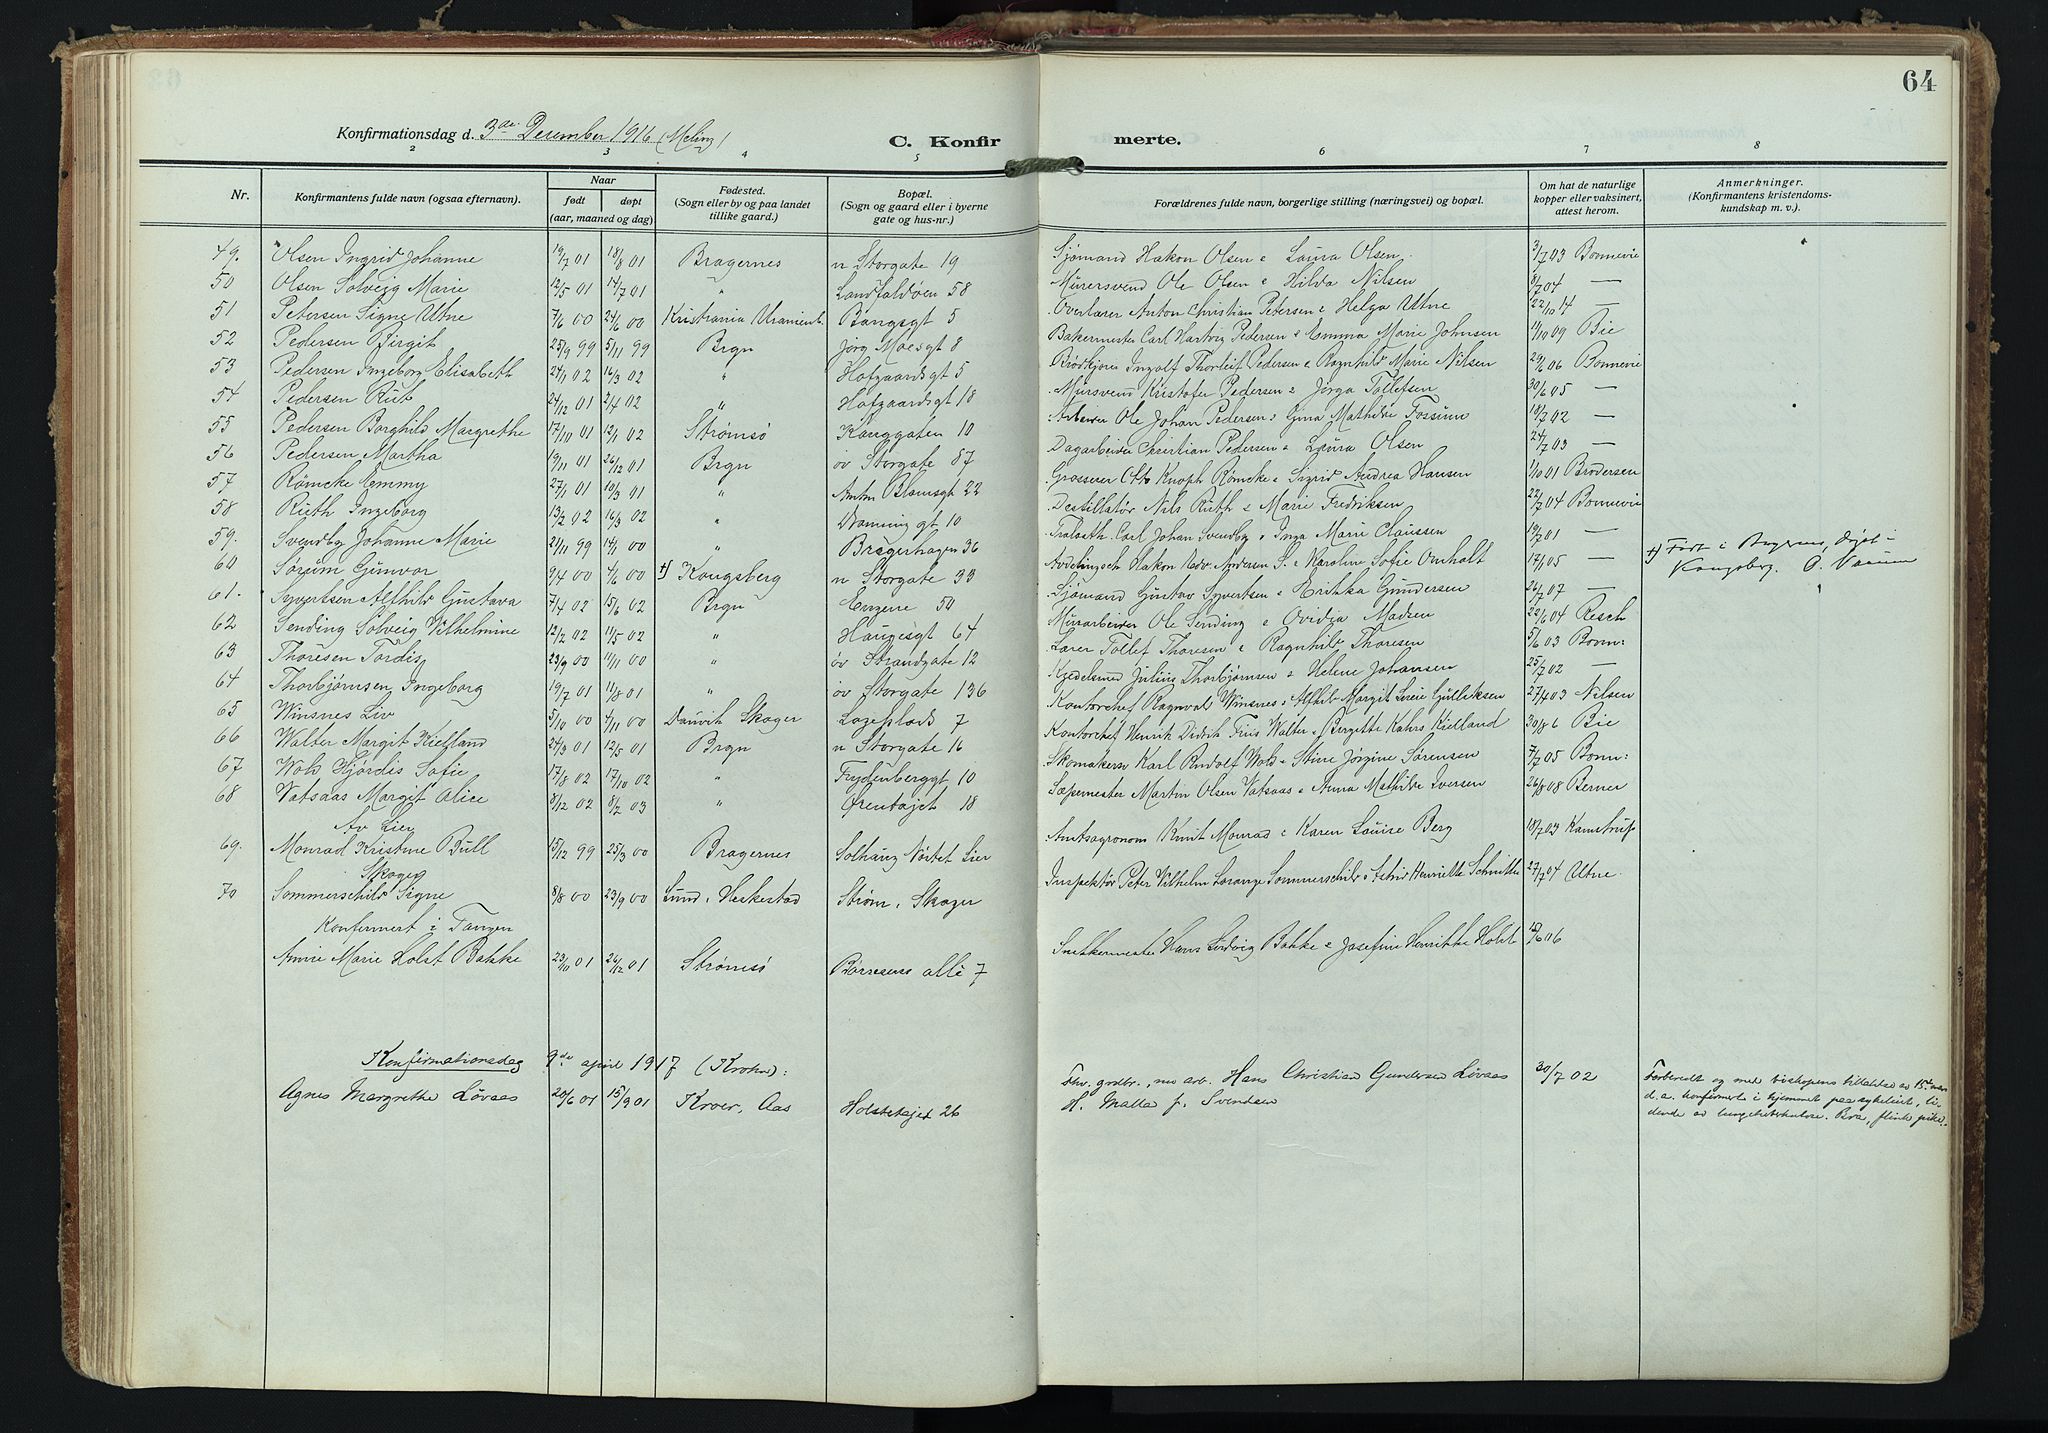 64
Konfirmationsdag d. 3de Desember 1916 (Meling)
C. Konfirmerte.
2 3 4 5 6 7 8
Nr. | Konfirmantens fulde navn (ogsaa efternavn). | Naar født | døpt (aar, maaned og dag) | Fødested. (Sogn eller by og paa landet tillike gaard.) | Bopæl. (Sogn og gaard eller i byerne gate og hus-nr.) | Forældrenes fulde navn, borgerlige stilling (næringsvei) og bopæl. | Om hat de naturlige kopper eller vaksinert, attest herom. | Anmerkninger. (Konfirmantens kristendomskundskap m. v.).
49. Olsen Ingrid Johanne 19/7 01 18/8 01 Bragernes n Storgate 19 Sjømand Hakon Olsen & Laura Olsen. 3/7 03 Bonnevie
50 Olsen Solveig Marie 12/5 01 14/7 01 " Landfaldøen 58 Murersvend Ole Olsen & Hilda Nilsen 8/7 04 —
51 Petersen Signe Utne 7/6 00 24/6 00 Kristiania Uranienb. Bangsgt 5 Overlærer Anton Christian Petersen & Helga Utne 22/10 14 —
52 Pedersen Birgit 25/9 99 5/11 99 Brgn Jørg Moesgt 8 Bakermester Carl Hartvig Pedersen & Emma Marie Johnsen 11/10 09 Bie
53 Pedersen Ingeborg Elisabeth 24/1 02 16/3 02 " Hofgaardsgt 5 Brødkjører Ingolf Thorleif Pedersen & Ragnhild Marie Nilsen 29/6 06 Bonnevie
54 Pedersen Rut 24/12 01 2/4 02 " Hofgaardsgt 18 Mursvend Kristofer Pedersen & Jørga Tollefsen 30/6 05 —
55 Pedersen Borghild Margrethe 17/10 01 12/1 02 Strømsø Konggaten 10 Arbeider Ole Johan Pedersen & Gina Mathilde Fossum 18/7 02 —
56 Pedersen Martha 19/11 01 26/12 01 Brgn øv Storgate 87 Dagarbeider Christian Pedersen & Laura Olsen 24/7 03 —
57 Rømcke Emmy 27/1 01 10/3 01 " Amtm Blomsgt 22 Grosserer Otto Knoph Rømcke & Sigrid Andrea Hansen 1/10 01 Brodersen
58 Rieth Ingeborg 13/2 02 16/3 02 " Dronning gt 10 Destillatør Nils Rieth & Marie Fredriksen 22/7 04 Bonnevie
59. Svendby Johanne Marie 21/11 99 14/1 00 " Bragerhagen 36 Carl Johan Svendby & Inga Marie Claussen 19/7 01 —
60 Sørum Gunvor 9/4 00 4/6 00 +) Kongsberg n Storgate 33 Hakon Andersen S. & Karoline Sofie Omholt 17/1 05 — +) Født i Bragernes, døpt i
Kongsberg.
61. Syvertsen Alfhild Gustava 7/4 02 15/6 02 Brgn Engene 50 Sjømand Gustav Syvertsen & Erikka Gundersen 26/7 07 —
62 Sending Solveig Vilhelmine 12/2 02 11/5 02 " Haugesgt 64 Murarbeider Ole Sending & Ovidia Madsen 22/6 04 Resch
63 Thoresen Tordis 23/9 00 11/11 00 " øv Strandgate 12 Lærer Tollef Thoresen & Ragnhild Thoresen 5/6 03 Bonn:
64 Thorbjørnsen Ingeborg 19/7 01 11/8 01 " øv Storgate 136 Kjedelsmed Julius Thorbjørnsen & Helene Johansen 25/7 02 —
65 Winsnes Liv 5/10 00 4/11 00 Danvik Skoger Løzeplads 7 Kontorchef Ragnvald Winsnes & Alfhild Margit Serie Gulliksen 27/4 03 Nilsen
66 Walter Margit Kielland 24/3 01 12/5 01 Brgn n Storgate 16 Kontorchef Henrik Didrik Friis Walter & Birgitte Kahrs Kielland 30/8 6 Bie
67 Wold Hjørdis Sofie 17/8 02 17/10 02 " Frydenberggt 10 Skomakersv Karl Rudolf Wold & Stine Jørgine Sørensen 7/7 05 Bonn:
68 Vatsaas Margit Alice 8/12 02 8/2 03 " Ørentajet 18 Sæpemester Martin Olsen Vatsaas & Anna Mathilde Iversen 26/8 08 Berner
Av Lier
69. Monrad Kristine Bull 15/12 99 25/3 00 Bragernes Solhaug Nørtet Lier Amtsagronom Knut Monrad & Karen Louise Berg 18/7 03 Kamstrup
Skoger
70 Sommerschild Signe 8/8 00 23/9 00 Lund i Heskestad Strøm i Skoger Inspektør Peter Vilhelm Lorange Sommerschild & Astrid Henriette Schmith 27/7 04 Utne
Konfirmert i Tangen
Anne Marie Holst Bakke 23/10 01 26/12 01 Strømsø Børresens alle 7 Snekkermester Hans Ludvig Bakke & Josefine Henrikke Holst 12/6 06
Konfirmationsdag 9de april 1917 (Krohn):
Agnes Margrethe Løvaas 20/6 01 15/9 01 Kroer, Aas Holstetajet 26 Fhv. grdbr., nu arb. Hans Christian Gundersen Løvaas 30/7 02 Forberedt og med biskopens tillatelse av 15de mars
H. Matta f. Svendsen d.a. konfirmert i hjemmet paa sykeleiet, li-
dende av lungetuberkulose. Bra, flink pike.